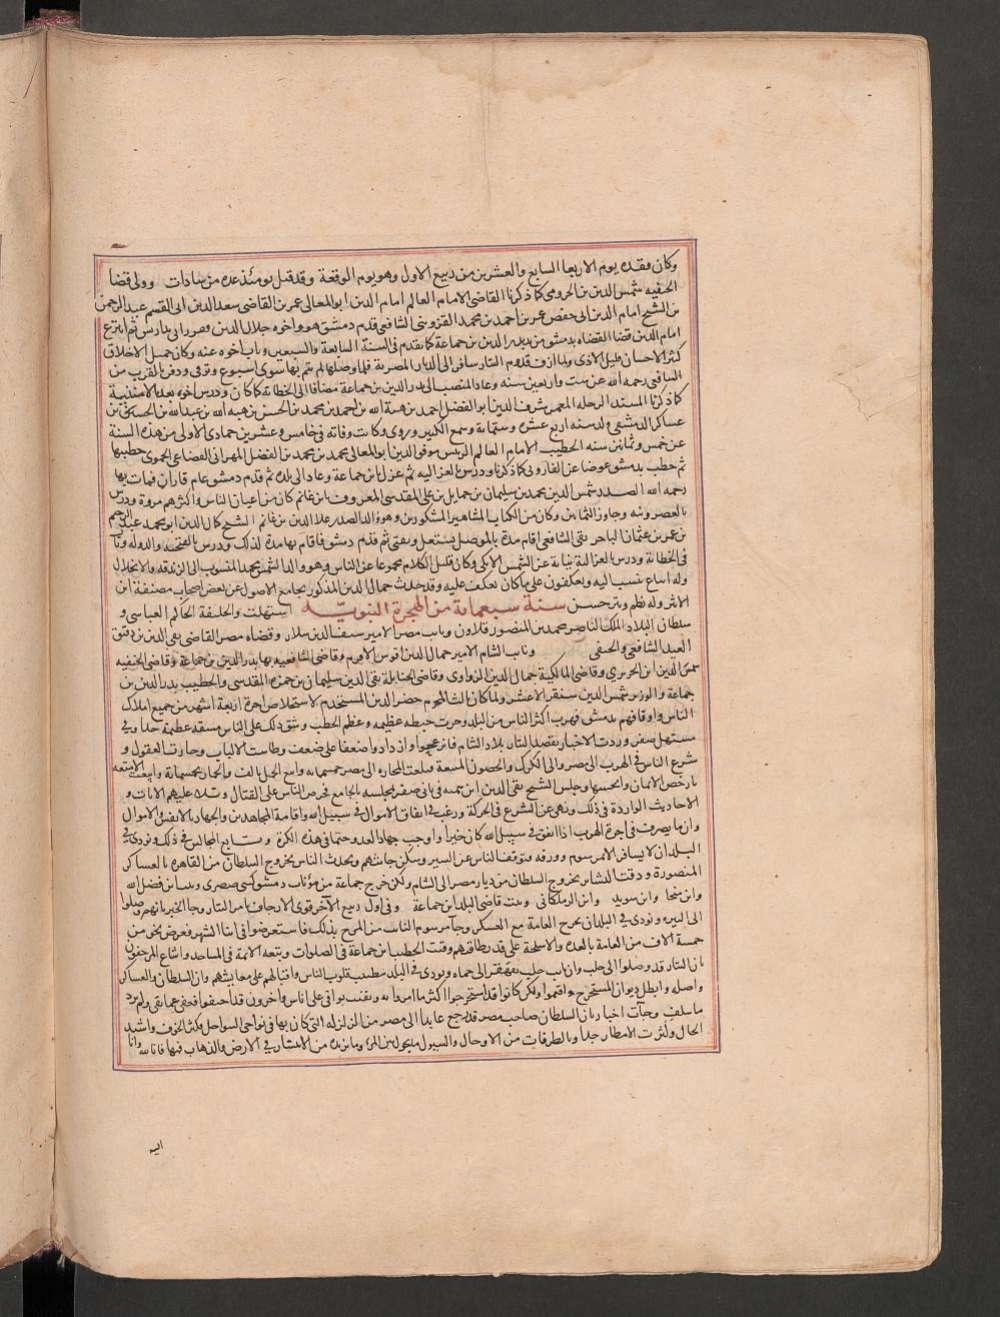 وكان فقده يوم الاربعا السابع والعشرين من ربيع الاول وهو يوم الوقعة وقد قتل يومئذ عده من سادات وولى قضا
الحنفيه شمس الدين بن الحروى كما ذكرنا القاضى الامام العالم امام الدين ابو المعالى عمر بن القاضى سعد الدين ابى القسم عبد الرحمن
بن الشيخ امام الدين ابى حفص عمر بن احمد بن محمد القزوينى الشافعى قدم دمشق هو واخوه جلال الدين وقررا فى مدارس ثم انتزع
امام الدين قضا القضاه بدمشق من بدر الدين بن جماعة كما تقدم فى السنة السابعة والتسعين وناب اخوه عنه وكان جميل الاخلاق
كثير الاحسان قليل الاذى ولما ازف قدوم التتار سافر الى الديار المصرية فلما وصلها لم يقم بها سوى اسبوع وتوفى ودفن بالقرب من
الشافعى رحمه الله عن ست واربعين سنه وعاد المنصب الى بدر الدين بن جماعة مضافا الى الخطابة كما كان ودرس اخوه بعده الامينية
كما ذكرنا المسند الرحله المعمر شرف الدين ابو الفضل احمد بن هبة الله بن احمد بن محمد بن الحسن بن هبه الله بن عبد الله بن الحسين بن
عساكر الدمشقى ولد سنه اربع عشره وستمائة وسمع الكثير وروى وكانت وفاته فى خامس وعشرين جمادى الاولى من هذه السنة
عن خمس وثمانين سنه الخطيب الامام العالم الريس موفق الدين ابو المعالى محمد بن محمد بن الفضل المهرانى القضاعى الحموى خطيبها
ثم خطب بدمشق عوضا عن الفاروثى كما ذكرنا ودرس بالغزاليه ثم عزل بابن جماعة وعاد الى بلده ثم قدم دمشق عام قازان فمات بها
رحمه الله الصدر شمس الدين محمد بن سليمان بن حمايل بن على المقدسى المعروف بابن غانم كان من اعيان الناس واكثرهم مروة ودرس
بالعصرونيه وجاوز الثمانين وكان من الكتاب المشاهير المشكورين وهو والد الصدر علا الدين بن غانم الشيخ كمال الدين ابو محمد عبد الرحيم
بن عمر بن عثمان الباجر بقى الشافعى اقام مدة بالموصل يشتغل ويفتى ثم قدم دمشق فاقام بها مدة كذلك ودرس بالفتحيه والدولعيه وناب
فى الخطابة ودرس بالغزالية نيابة عن الشمس الايكى وكان قليل الكلام مجموعا عن الناس وهو والد الشمس محمد المنسوب الى الزندقه والانحلال
وله اتباع ينسب اليه ويعكفون على ما كان يعكف عليه وقد حدث جمال الدين المذكور بجامع الاصول عن بعض اصحاب مصنفه ابن
الاثير وله نظم ونثر حسن سنة سبعمائة من الهجرة النبوية استهلت والخليفة الحاكم العباسى و
سلطان البلاد الملك الناصر محمد بن المنصور قلاون ونايب مصر الامير سيف الدين سلار وقضاه مصر القاضى تقى الدين بن دقيق
العيد الشافعى والحنفى ونايب الشام الامير جمال الدين اقوش الافرم وقاضى الشافعيه بها بدر الدين بن جماعة وقاضى الحنفيه
شمس الدين ابن الحريرى وقاضى المالكية جمال الدين الزواوى وقاضى الحنابلة تقى الدين سليمان بن حمزه المقدسى والخطيب بدر الدين بن
جماعة والوزير شمس الدين سنقر الاعسر ولما كان ثالث المحرم حضر الدين المستخدم لاستخلاص اجرة اربعة اشهر من جميع املاك
الناس واوقافهم بدمشق فهرب اكثر الناس من البلد وجرت خبطه عظيمه وعظم الخطب وشق ذلك على الناس مشقه عظيمة جدا وفى
مستهل صفر وردت الاخبار بقصد التتار بلاد الشام فانزعجوا وازدادوا ضعفا على ضعف وطاشت الالباب وحارت العقول و
شرع الناس فى الهرب الى مصر والى الكرك والحصون المنيعة فبلغت المحاره الى مصر خمسمايه وابيع الجمل بالف والحمار بخمسمائة وابيعت الامتعه
بارخص الاثمان وانحسها وجلس الشيخ تقى الدين ابن تيميه فى ثانى صفر بمجلسه بالجامع فحرض الناس على القتال وتلا عليهم الايات و
الاحاديث الواردة فى ذلك ونهى عن التسرع فى الحركة ورغب فى انفاق الاموال فى سبيل الله واقامة المجاهدين والجهاد بالانفس والاموال
وان ما يصرف فى اجرة الهرب اذا انفق فى سبيل الله كان خيرا واوجب جهاد العدو حتما فى هذه الكرة وتتابع المجالس فى ذلك ونودى فى
البلد ان لا يسافر الا بمرسوم وورقه فتوقف الناس عن السير وسكن جاشهم وتحدث الناس بخروج السلطان من القاهره بالعساكر
المنصورة ودقت البشاير بخروج السلطان من ديار مصر الى الشام ولكن خرج جماعة من بيوتات دمشق كبنى صصرى وبيت ابن فضل الله
وابن منجا وابن سويد وابن الزملكانى وبيت قاضى البلد ابن جماعة وفى اول ربيع الآخر قوى الارجاف بامر التتار وجا الخبر بانهم وصلوا
الى البيره ونودى فى البلد ان تخرج العامة مع العسكر وجا مرسوم النايب من المرج بذلك فاستعرضوا فى اثنا الشهر فعرض نحو من
خمسة الاف من العامة بالعده والاسلحة على قدر طاقتهم وقنت الخطيب ابن جماعة فى الصلوات وتبعه الائمة فى المساجد واشاع المرجفون
بان التتار قد وصلوا الى حلب وان نايب حلب تقهقر الى حماه ونودى فى البلد بتطييب قلوب الناس واقبالهم على معايشهم وان السلطان والعساكر
واصله وابطل ديوان المستخرج واقيموا ولكن كانوا قد استخرجوا اكثر مما امروا به وبقيت بواقى على اناس واخرون قد اختفوا فعفى عما بقى ولم يرد
ما سلف وجآت اخبار بان السلطان صاحب مصر قد رجع عايدا الى مصر من الزلزله التى كان بها فى نواحى السواحل وكثر الخوف واشتد
الحال وكثرت الامطار جدا وبالطرقات من الاوحال والسيول ما يحول بين المرء وما يريده من الانتشار فى الارض والذهاب فيها فانا لله وانا
اليه